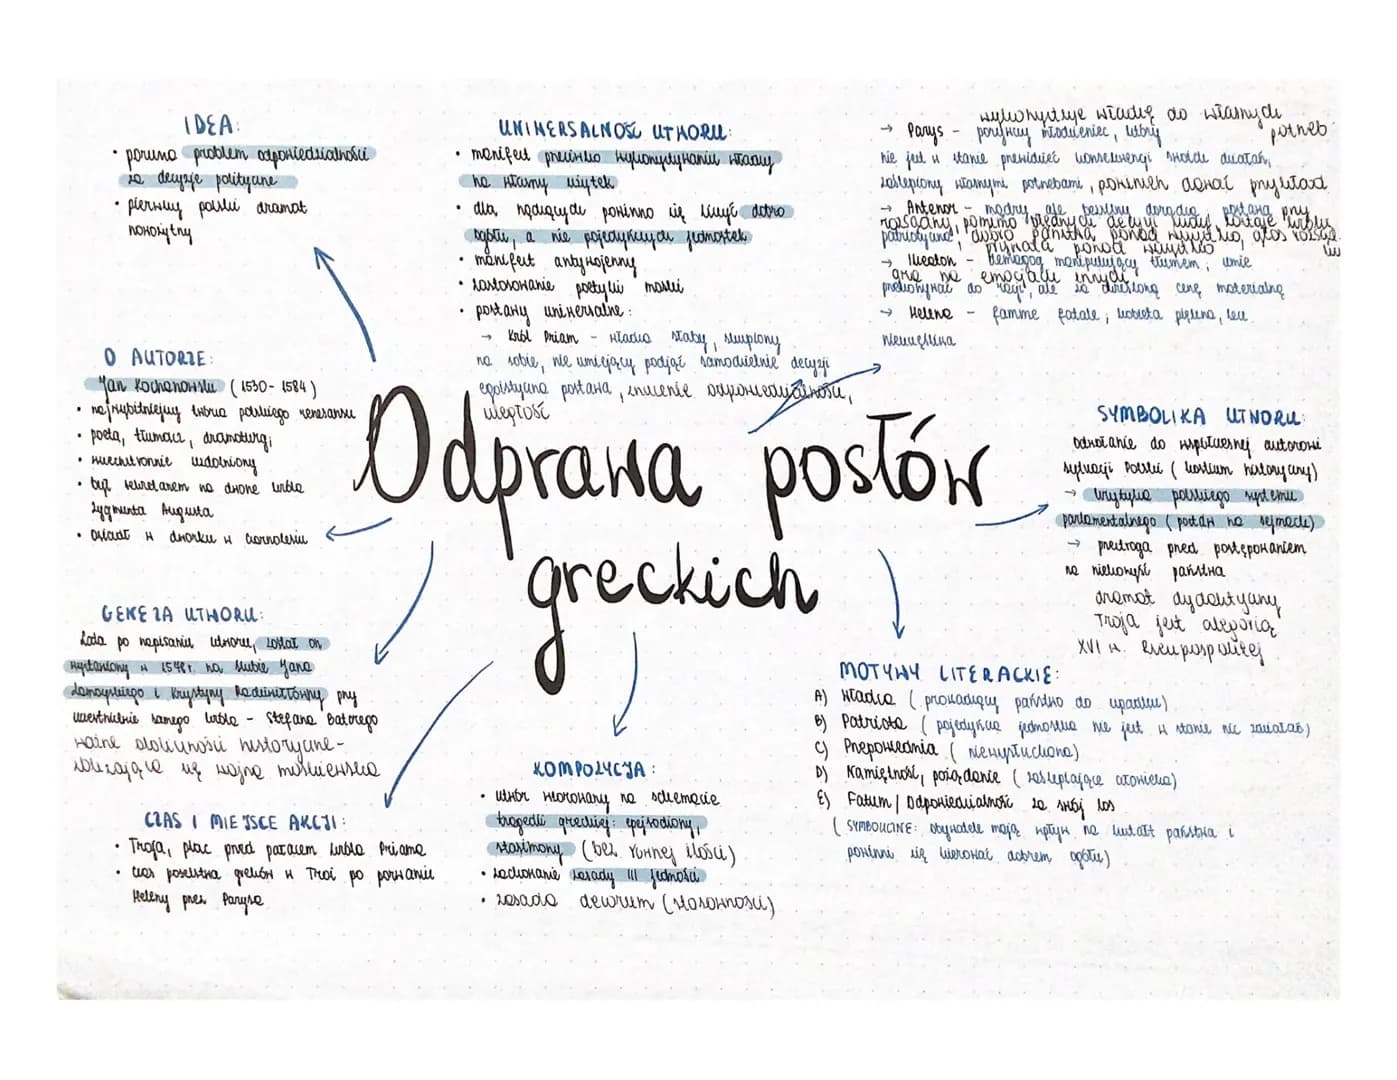 IDEA:
• porusza problem odpowiedzialności
za decyzje polityczne
• pierwszy polski dramat
nowożytny
O AUTORZE:
Jan Kochanowski (1530-1584)
• najwybitniejszy twórca polskiego renesansu
• poeta, tłumacz, dramaturg;
• wszechstronnie uzdolniony
• był sekretarzem na dworze króla
Zygmunta Augusta
• osiadł w dworku w Czarnolesiu
GENEZA UTWORU:
po napisaniu utworu, został on
wystawiony w 1578 r. na ślubie Jana
Zamoyskiego i Krystyny Radziwiłłówny, przy
uczestnictwie samego króla - Stefana Batorego
ważne okoliczności historyczne-
zbliżająca się wojna moskiewska
CZAS I MIEJSCE AKCJI:
• Troja, plac przed pałacem króla Priama
• czas poselstwa greków w Troi po porwaniu
Heleny przez Parysa
UNIWERSALNOŚĆ UTWORU:
• manifest przeciwko wykorzystywaniu władzy
na własny użytek
• dla rządzących powinno się liczyć dobro
ogółu, a nie pojedynczych jednostek
• manifest antywojenny
• zastosowanie poetyki maski
• postawy uniwersalne:
→ Król Priam - władca słaby, skupiony
na sobie, nie umiejący podjąć samodzielnie decyzji
egoistyczna postawa, zrzucenie odpowiedzialności,
uległość
Odprawa posłów
greckich
KOMPOZYCJA:
• utwór wzorowany na schemacie
tragedii greckiej: epejsodiony,
stasimony (bez równej ilości)
• zachowanie zasady III jedności
• zasada decorum (stosowności)
wykorzystuje władzę do własnych
potrzeb
→ Parys - porywczy młodzieniec, który
nie jest w stanie przewidzieć konsekwencji swoich działań,
zaślepiony własnymi potrzebami, powinien dawać przykład
→ Antenor - mądry, ale bezsilny doradca, postawa przy
rozsądny, pomimo błędnych decyzji
patriotyczna, dobro państwa ponad wszystko, głos
prywata ponad wszystko
→ Iketaon - demagog manipulujący tłumem, umie
gra na emocjach innych
przekonywać do racji, ale za określoną cenę materialną
→ Helena - famme fatale, kobieta piękna, lecz
nieszczęśliwa
SYMBOLIKA UTWORU:
odwołanie do współczesnej autorowi
sytuacji Polski (kostium historyczny)
→ krytyka polskiego systemu
parlamentalnego (postaw na sejmach)
→ przestroga przed postępowaniem
na niekorzyść państwa
dramat dydaktyczny
Troja jest alegorią
XVI w. Rzeczpospolitej
MOTYWY LITERACKIE:
A) Władca (prowadzący państwo do upadku)
B) Patriota (pojedyncza jednostka nie jest w stanie nic zdziałać)
C) Przepowiednia (niewysłuchana)
D) Namiętność, pożądanie (zaślepiające człowieka)
E) Fatum / Odpowiedzialność za swój los
(SYMBOLICZNE: obywatele mają wpływ na kształt państwa i
powinni się kierować dobrem ogółu)